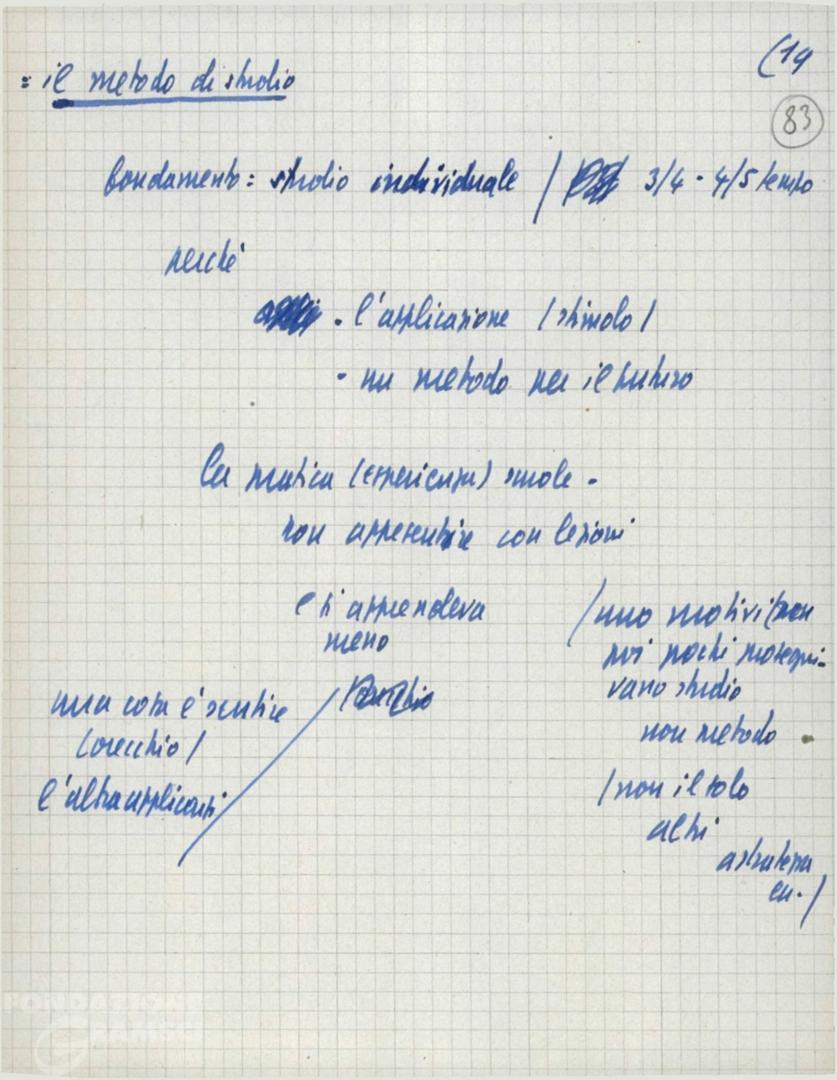 (14
83
= il metodo di studio
fondamento = studio individuale / 3/4 - 4/5 tempo
perché
- l'applicazione (stimolo)
- un metodo per il futuro
la pratica (esperienza) scuole -
non appesantire con lezioni
e si apprendeva
meno
una cosa è sentire
(orecchio)
l'altra applicarsi
/ uno motivi (non
poi pochi prosegui-
vano studio
non metodo
/ non il solo
altri
astrattezza
ecc. /
FONDAZIONE
GRAMSCI